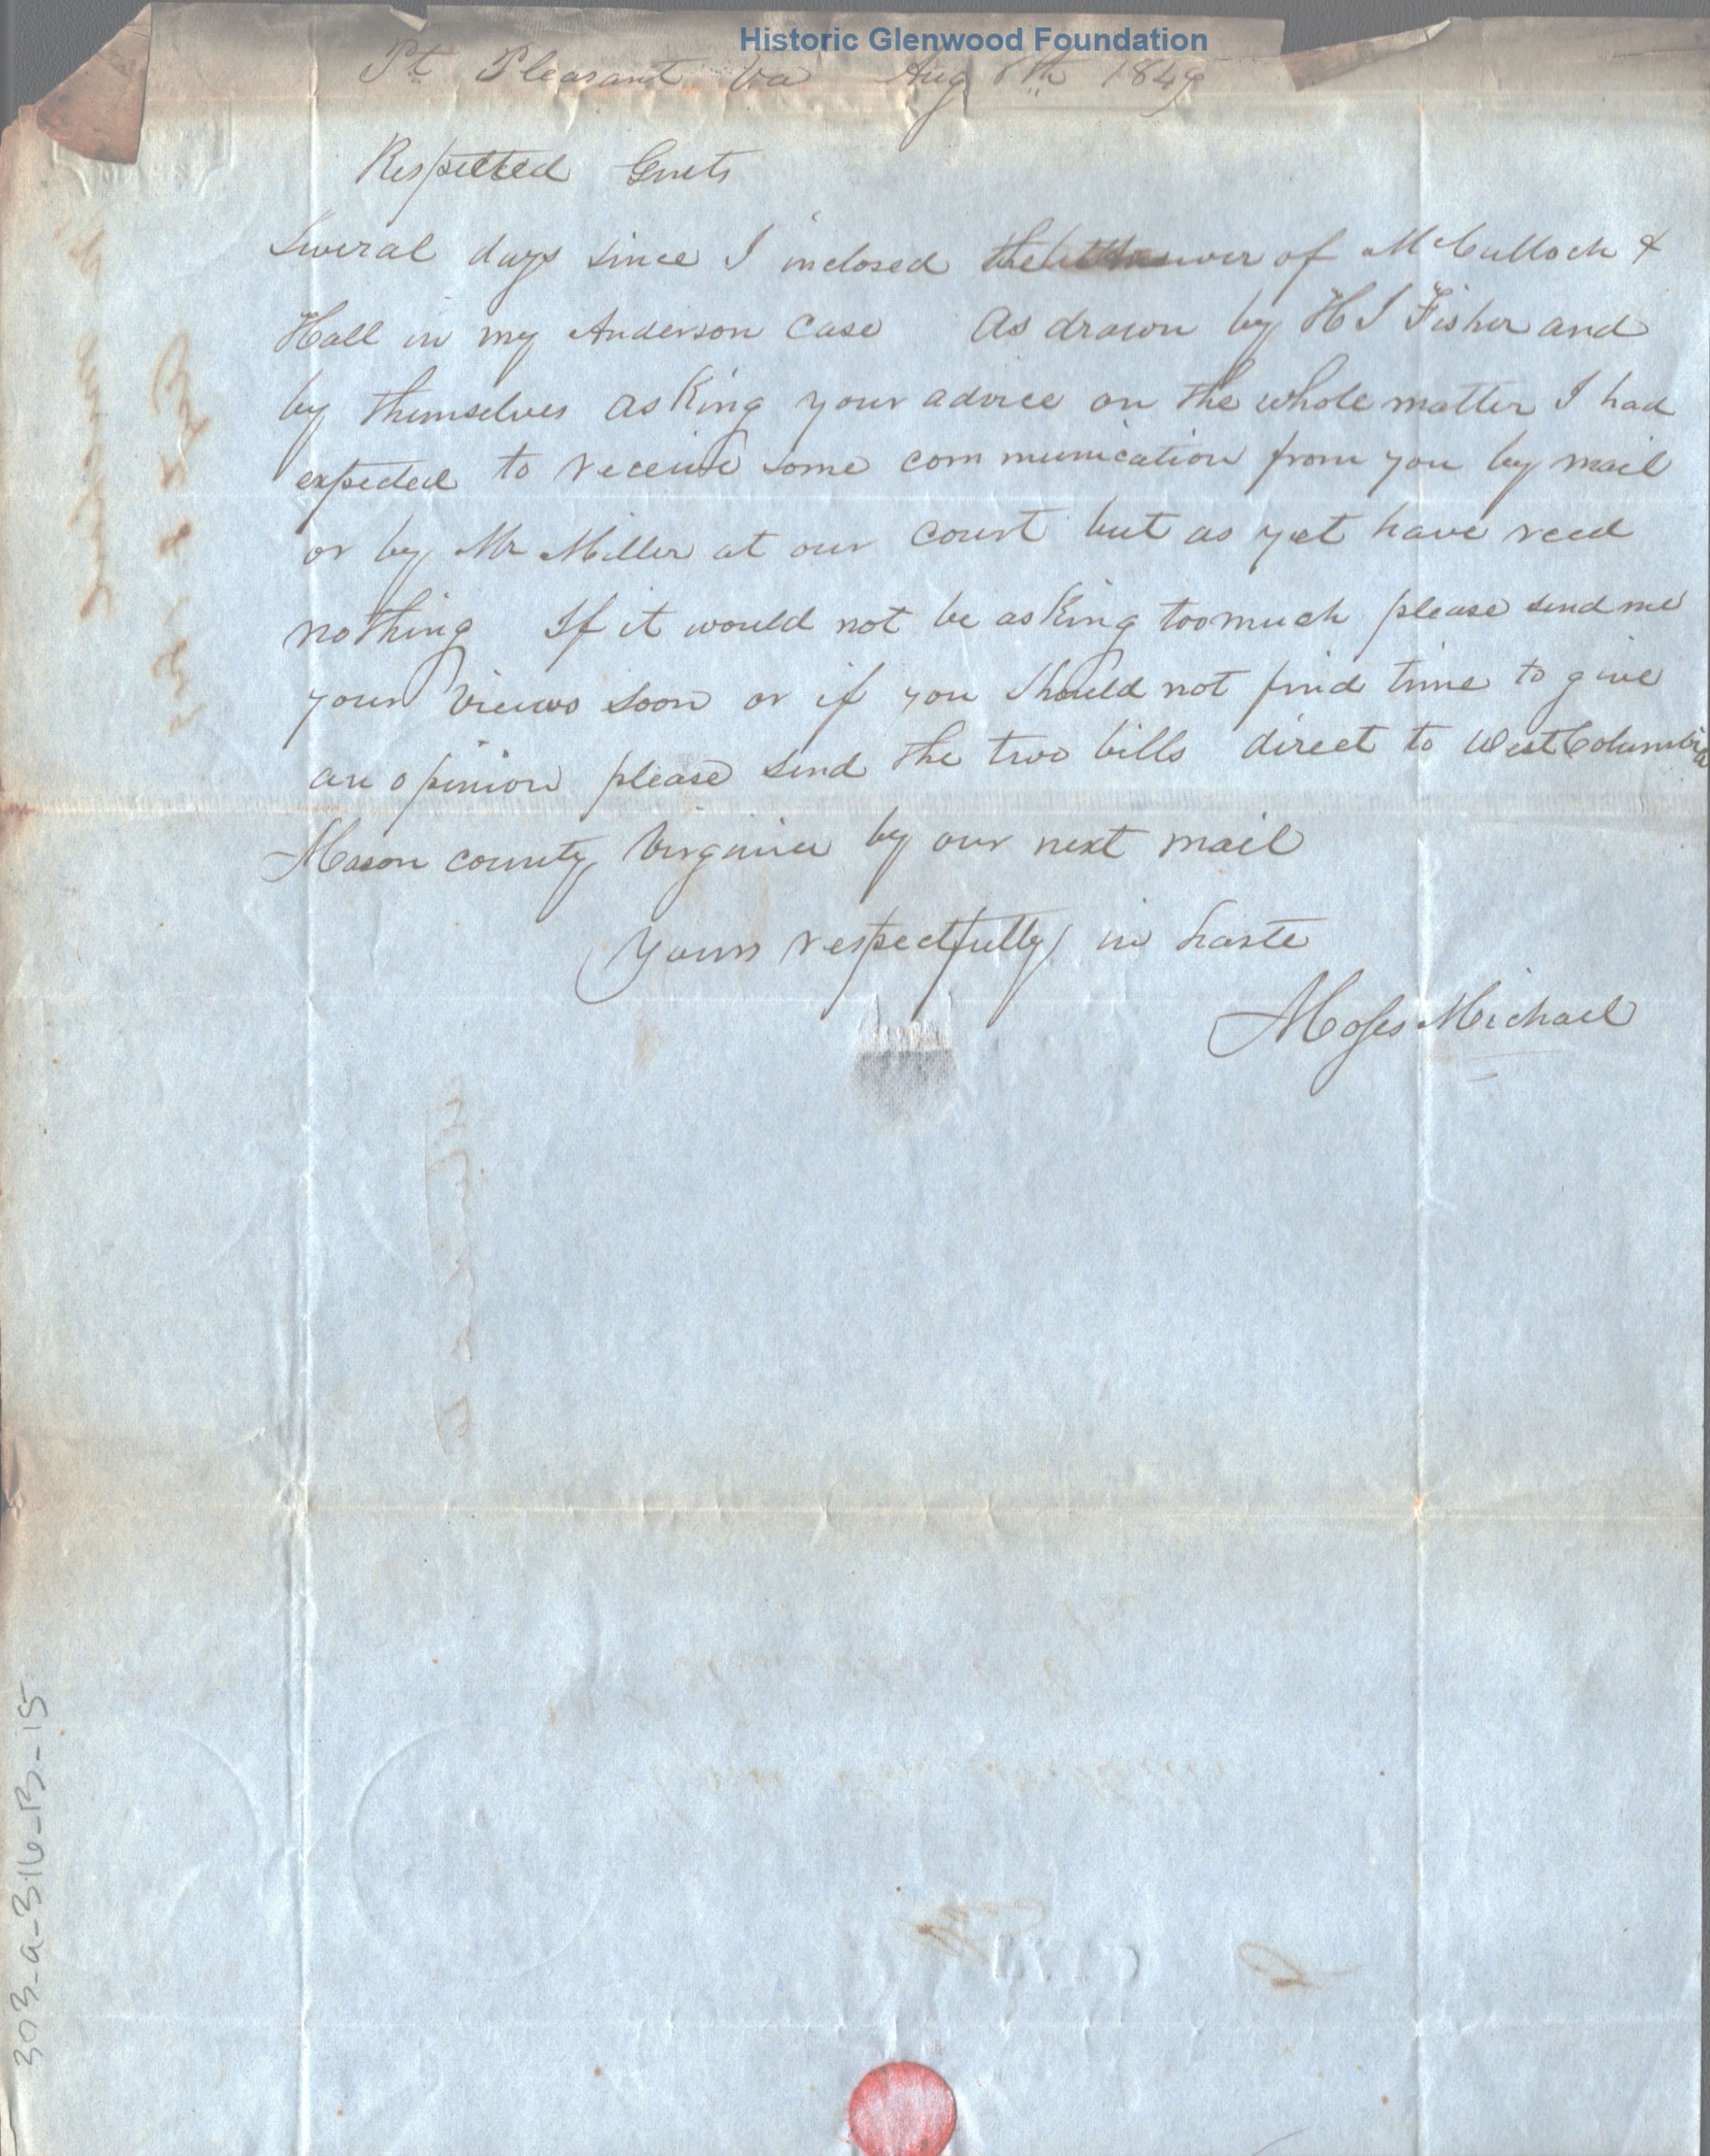 Historic Glenwood Foundation
Pt Pleasant Va Aug 8th 1849
Respected Gents
Several days since I inclosed the answer of McCulloch &
Hall in my Anderson Case As drawn by H J Fisher and
by themselves asking your advice on the whole matter I had
expected to receive some communication from you by mail
or by Mr Miller at our court but as yet have recd
nothing If it would not be asking too much please send me
your views soon or if you should not find time to give
an opinion please send the two bills direct to West Columbia
Mason county Virginia by our next mail
Yours respectfully in haste
Moses Michael
303-a-316-B-15